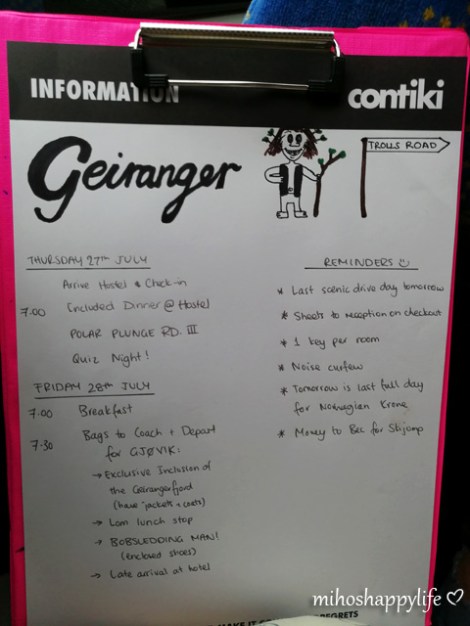 INFORMATION
contiki
Geiranger
TROLLS ROAD
THURSDAY 27TH JULY
Arrive Hostel & Check-in
7.00 Included Dinner @ Hostel
POLAR PLUNGE RD. III
Quiz Night!
FRIDAY 28TH JULY
7:00 Breakfast
7:30 Bags to Coach + Depart
for GJØVIK:
→ Exclusive Inclusion of
the Geirangerfjord
(have jackets +
→ Lom lunch stop
→ BOBSLEDDING MAN!
(enclosed shoes)
→ Late arrival at hotel
REMINDERS
* Last scenic drive day tomorrow
* Sheets to reception on checkout
* 1 key per room
* Noise curfew
* Tomorrow is last full day
for Norwegian Krone
* Money to Bec for Skijump
mihoshappylife
MAKE IT
REGRETS